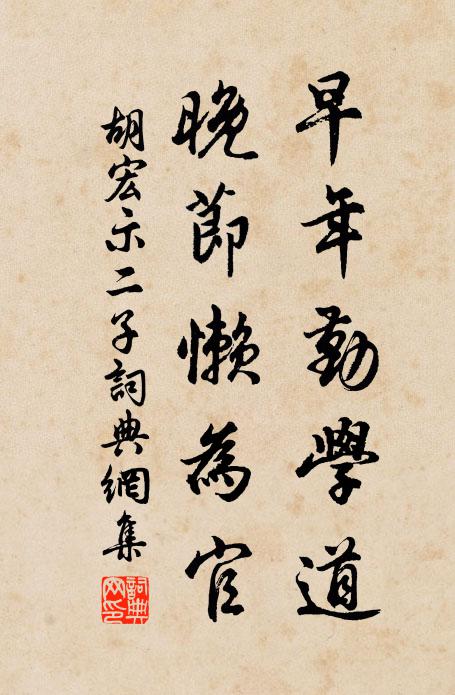 早年勤學道
晚節懶為官
胡宏示二子詞典網集
詞典
网印